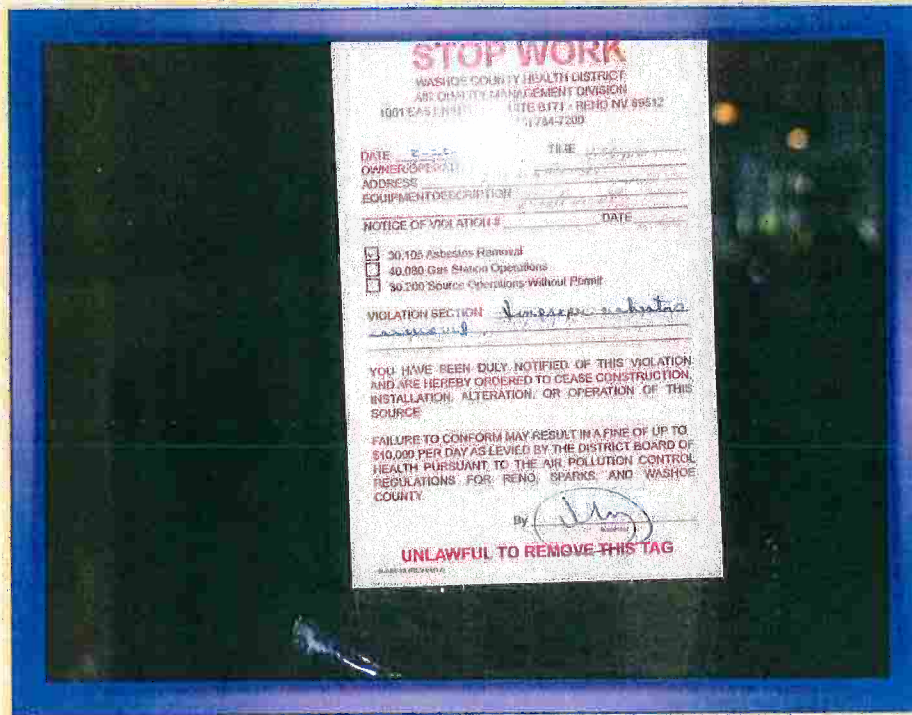 STOP WORK
WASHOE COUNTY HEALTH DISTRICT
AIR QUALITY MANAGEMENT DIVISION
1001 EAST B171 - RENO NV 89512
784-7200
DATE TIME
OWNER/OPERATOR
ADDRESS
EQUIPMENT DESCRIPTION
NOTICE OF VIOLATION # DATE
30.105 Asbestos Removal
40.080 Gas Station Operations
30.200 Source Operations Without Permit
VIOLATION SECTION asbestos
removal
YOU HAVE BEEN DULY NOTIFIED OF THIS VIOLATION
AND ARE HEREBY ORDERED TO CEASE CONSTRUCTION,
INSTALLATION, ALTERATION, OR OPERATION OF THIS
SOURCE
FAILURE TO CONFORM MAY RESULT IN A FINE OF UP TO
$10,000 PER DAY AS LEVIED BY THE DISTRICT BOARD OF
HEALTH PURSUANT TO THE AIR POLLUTION CONTROL
REGULATIONS FOR RENO, SPARKS, AND WASHOE
COUNTY
By
UNLAWFUL TO REMOVE THIS TAG